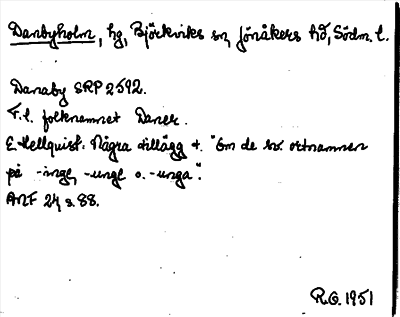 Danbyholm, hg, Björkviks sn, Jönåkers hd, Södm. l.
Danaby SRP 2592.
T.l. folknamnet Daner.
E. Hellquist: Några tillägg t. "Om de sv. ortnamnen
på -inge, -unge o. -unga".
ANF 24 s. 88.
R.G. 1951